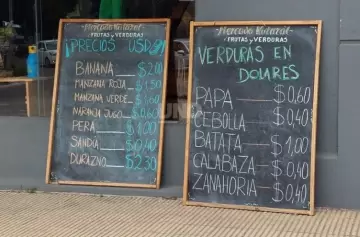 Mercado Natural
- FRUTAS Y VERDURAS -
PRECIOS USD
BANANA — $2.00
MANZANA ROJA — $1.50
MANZANA VERDE — $1.60
NARANJA JUGO — $0.60
PERA — $1.00
SANDIA — $0.40
DURAZNO — $2.30
Mercado Natural
- FRUTAS Y VERDURAS -
VERDURAS EN
DOLARES
PAPA — $0.60
CEBOLLA — $0.40
BATATA — $1.00
CALABAZA — $0.40
ZANAHORIA — $0.40